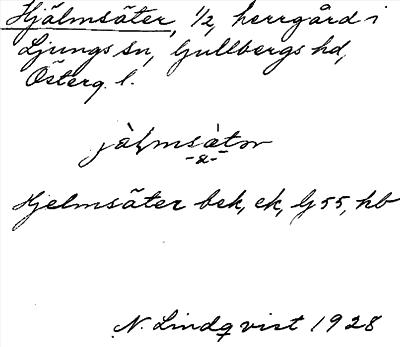 Hjälmsäter, 1/2, herrgård i
Ljungs sn, Gullbergs hd,
Österg. l.
jàlmsàtər
-a-
Hjelmsäter bek, ek, G 55, hb
N. Lindqvist 1928